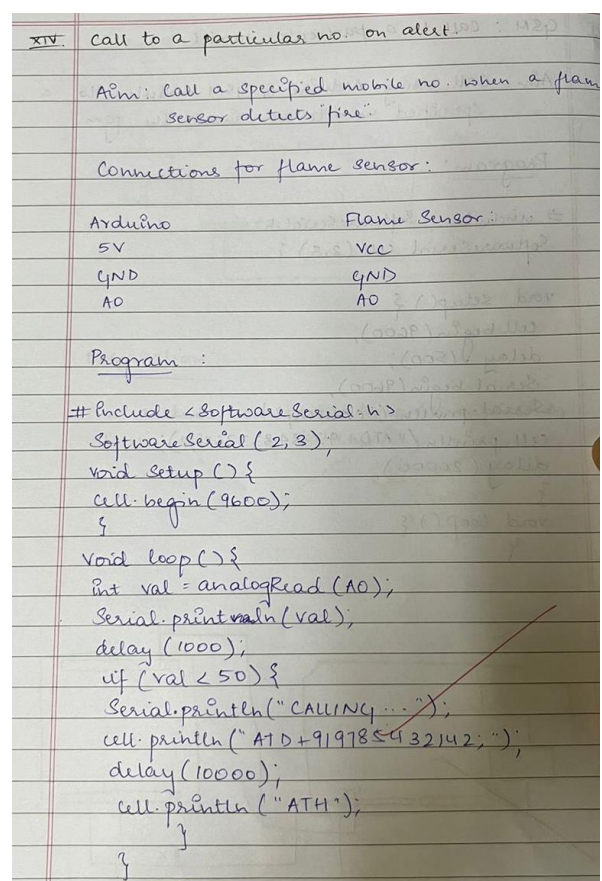 XIV. Call to a particular no. on alert.
Aim: Call a specified mobile no. when a flam
sensor detects "fire".
Connections for flame sensor:
Arduino Flame Sensor:
5V VCC
GND GND
A0 A0
Program :
#include <SoftwareSerial.h>
SoftwareSerial(2,3);
void setup () {
cell.begin(9600);
}
void loop() {
int val = analogRead (A0);
Serial.println(val);
delay (1000);
if (val < 50) {
Serial.println("CALLING...");
cell.println("ATD+919785432142;");
delay(10000);
cell.println ("ATH");
}
}